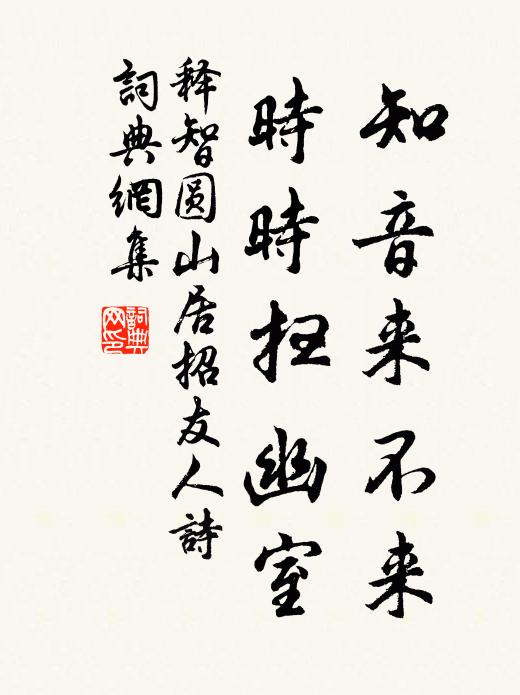 知音来不来
時時扫幽室
释智圆山居招友人詩
詞典網集
詞典网印